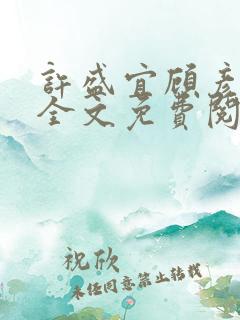 許盛宜顧彥
全文免費閱
祝欣
未经同意禁止转载